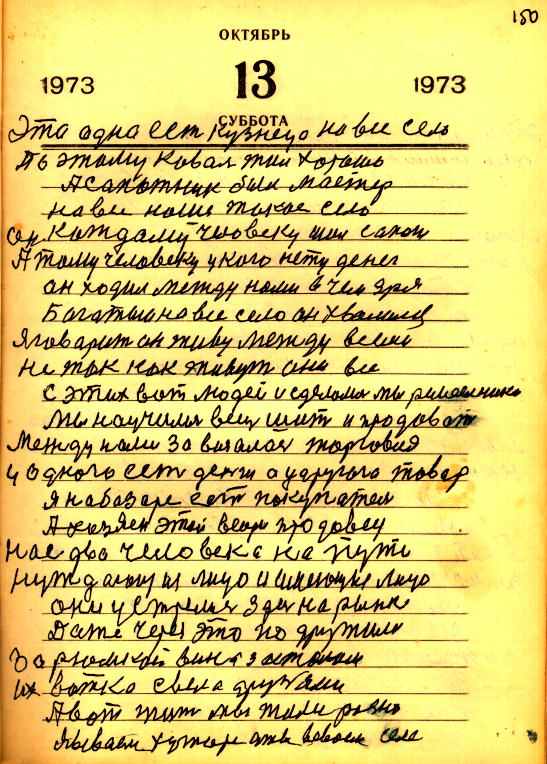 150
ОКТЯБРЬ
1973 13 1973
СУББОТА
Эта адна сет кузнеца на все село
По этому ковал жил хорошо
А сапожник был мастер
на все наше такое село
он каждаму человеку шил сапоги
А тому человеку у кого нету денег
он ходил между нами в чем зря
Багатый на все село он хвалилс
Я говарит он живу между всеми
не так как живут они все
С этих вот людей и сделали мы
Мы научилис вещ шит и продоват
Между нами за вязалас торговля
у одного сет денги а у другого товар
Я на базаре сот покупател
А хозяен этой вещи продовец
нас два человека на пути
нуждающия лицо и лицо
они устрелис здес на рынке
Даже через это по дружили
За рюмкой вина за столом
их вотка свела друзями
А вот жит мы жили
села